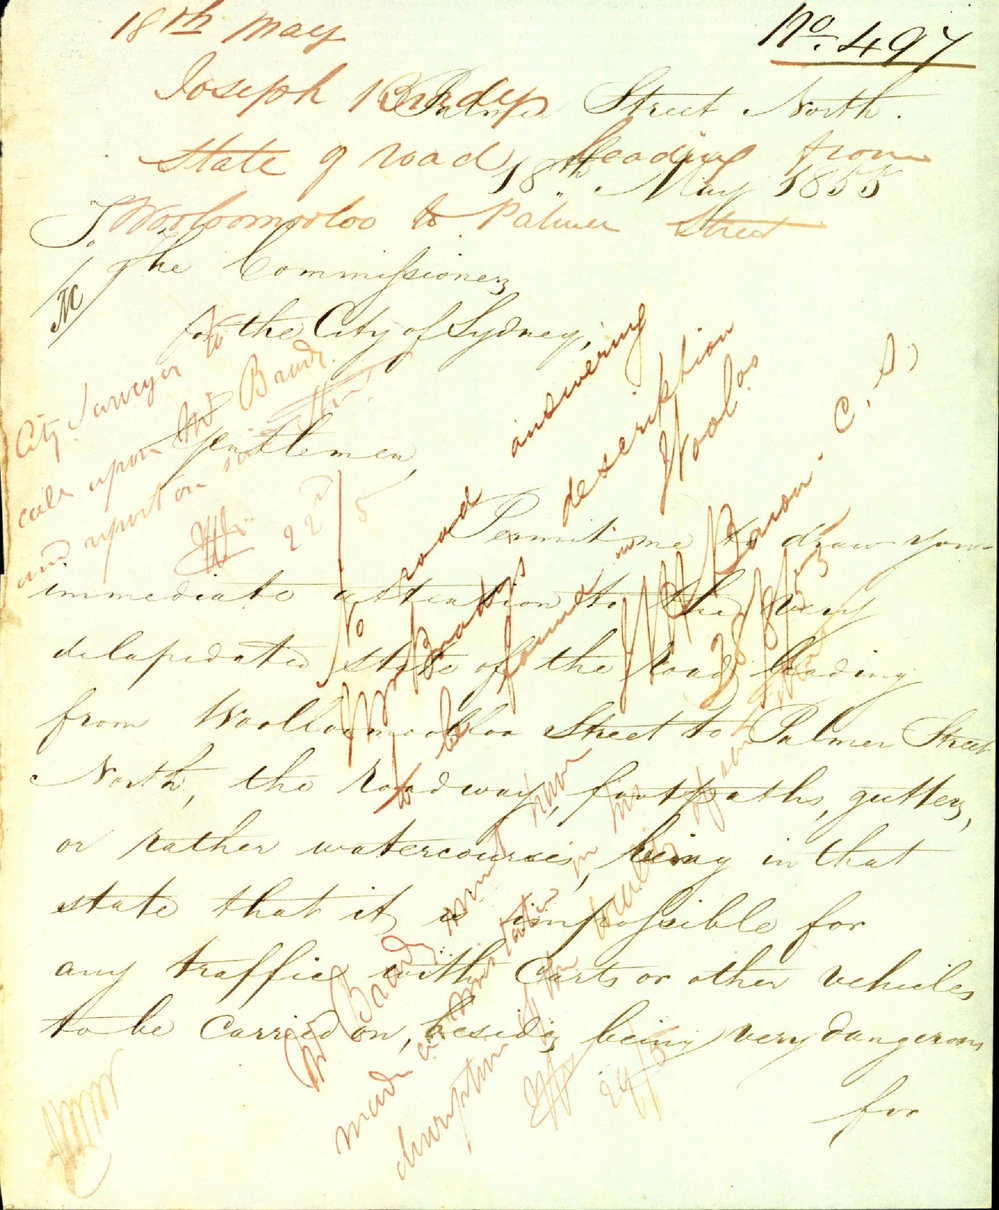 No. 497
18th May
Joseph Brady
State of road leading from
Wooloomooloo to Palmer Street
Palmer Street North.
18th May 1855
To,
The Commissioners
for the City of Sydney,
Gentlemen,
Permit me to draw your
immediate attention to the very
delapidated state of the road leading
from Woolloomooloo Street to Palmer Street
North, the roadway, footpaths, gutters,
or rather watercourses, being in that
state that it is impossible for
any traffic with Carts or other vehicles
to be carried on, besides being very dangerous
for
City Surveyor to
call upon Mr Brady
and report on
22nd/5
No road answering
Mr Bradys description
to be found in Wool.oo
Baron. C. S.
28/5/55
Mr Brady must have
made a mistake in his
description of the locality
29/5